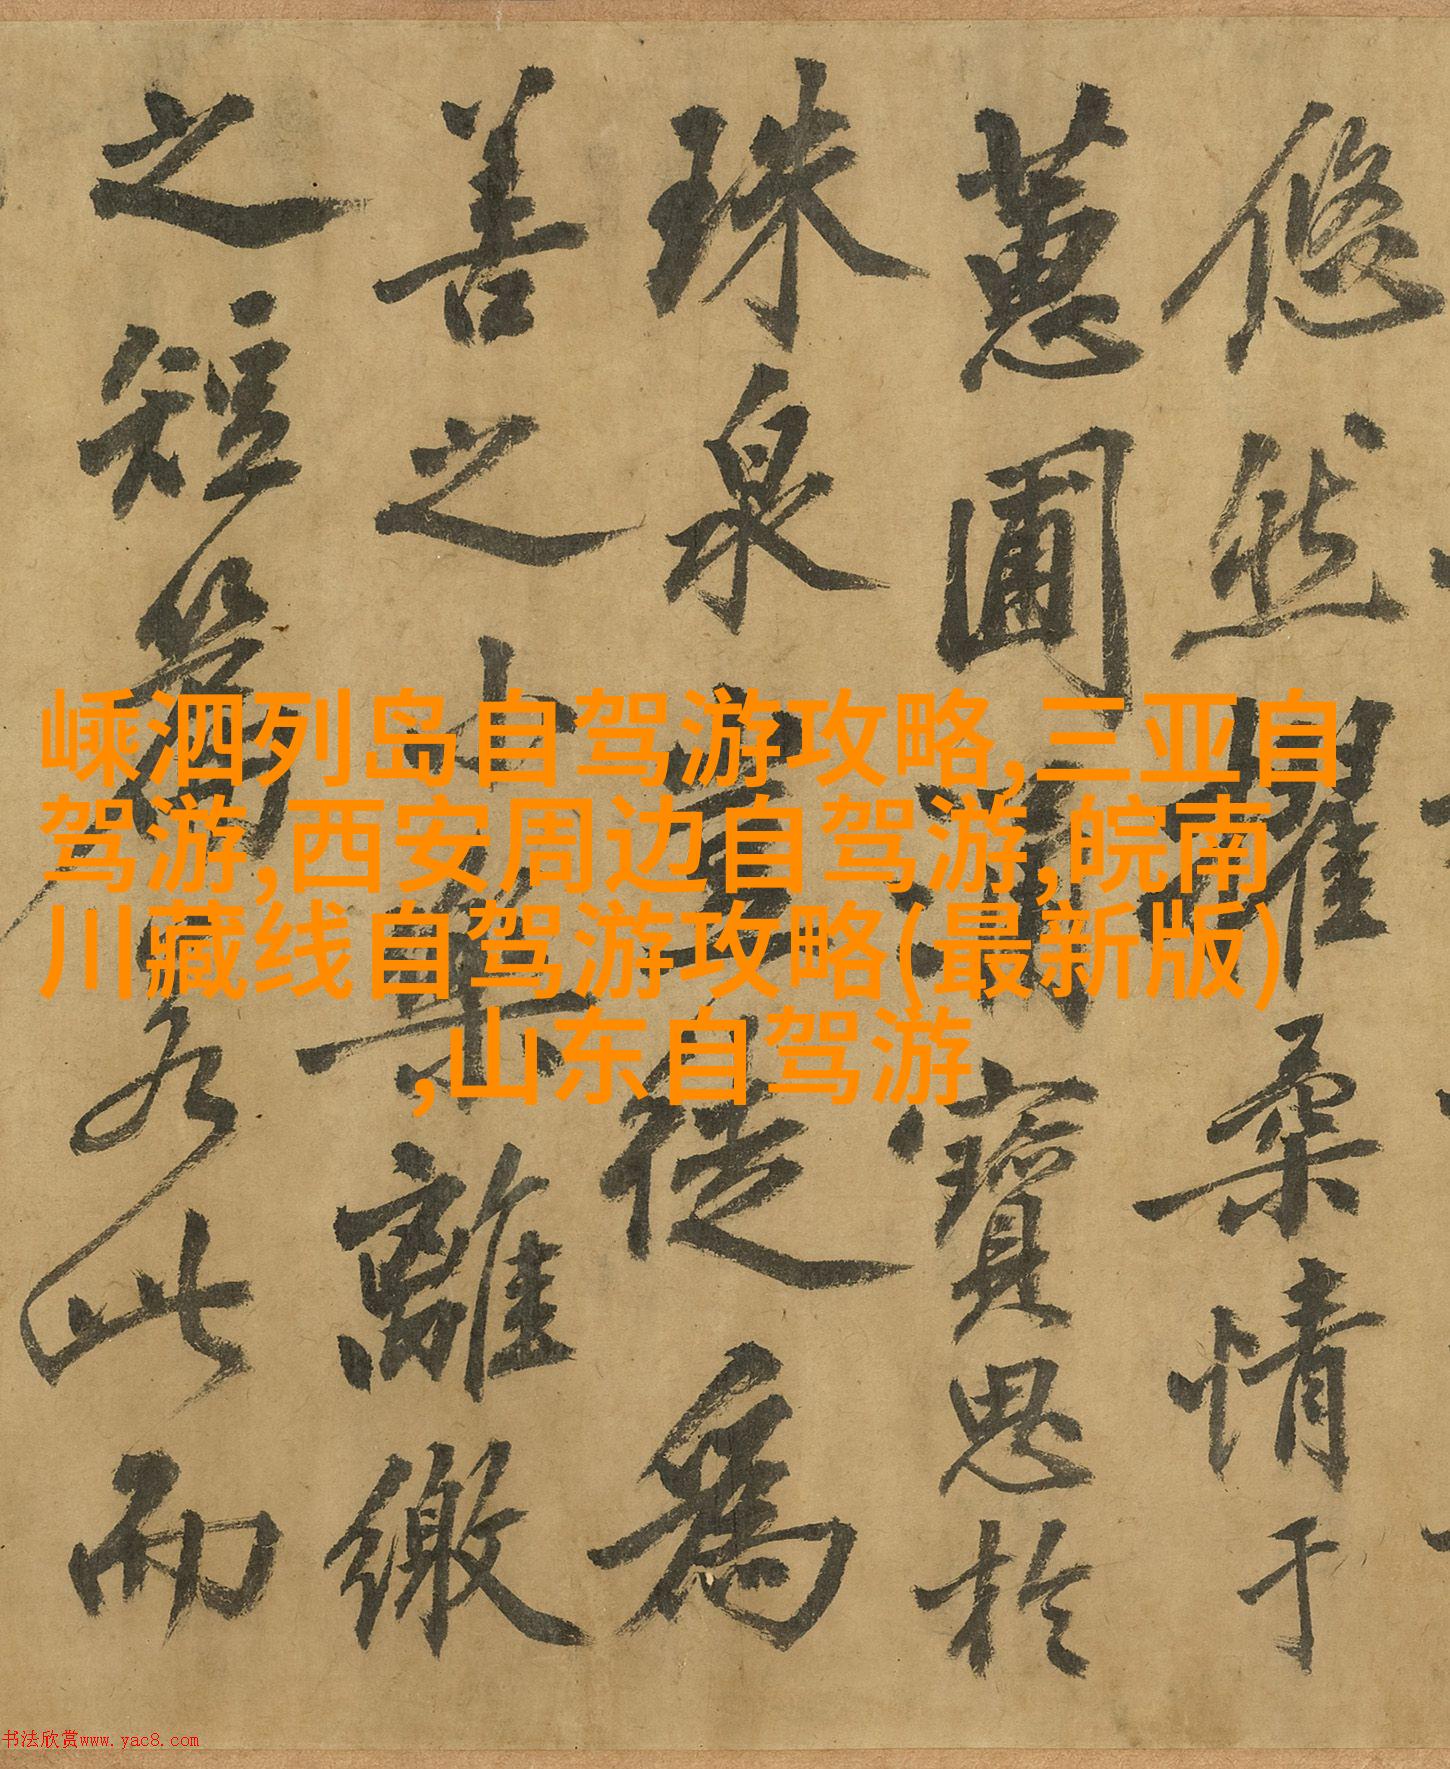 悠然擢柔情于
蕙圃寶思於
珠泉豈徒為
善之小樂離繳
之短若此而
嵊泗列岛自驾游攻略,三亚自
驾游,西安周边自驾游,皖南
川藏线自驾游攻略(最新版)
,山东自驾游
书法欣赏www.yac8.com